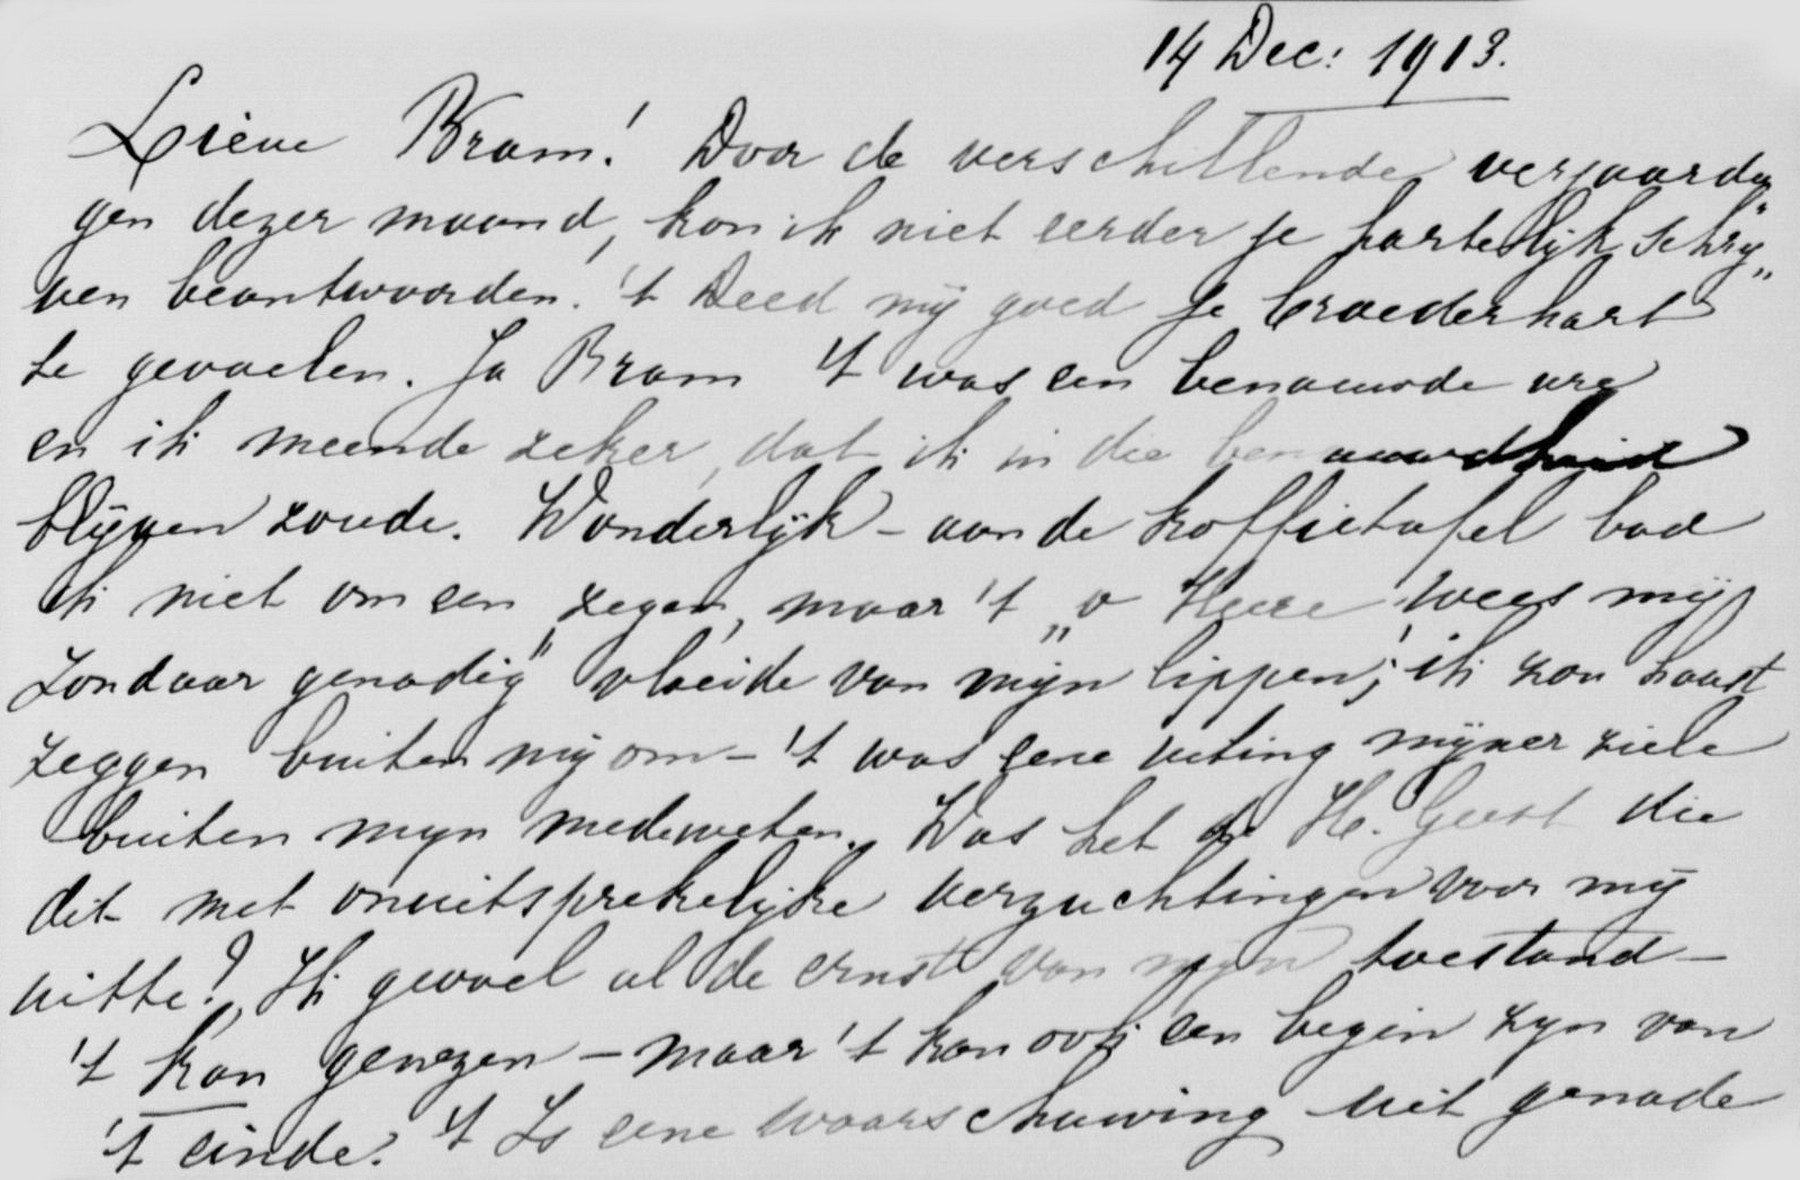 14 Dec: 1913.
Lieve Bram! Door de verschillende verjaarda„
gen dezer maand, kon ik niet eerder je hartelijk schrij„
ven beantwoorden. 't Deed mij goed je broederhart
te gevoelen. Ja Bram 't was een benauwde ure
en ik meende zeker, dat ik in die benauwdheid
blijven zoude. Wonderlijk - aan de koffietafel bad
ik niet om een zegen, maar 't „o Heere wees mij
zondaar genadig" vloeide van mijn lippen; ik zou haast
zeggen buiten mij om - 't was eene uiting mijner ziele
buiten mijn medeweten. Was het de H. Geest die
dit met onuitsprekelijke verzuchtingen voor mij
uitte? Ik gevoel al de ernst van mijn toestand -
't kan genezen - maar 't kan ook een begin zijn van
't einde. 't Is eene waarschuwing uit genade